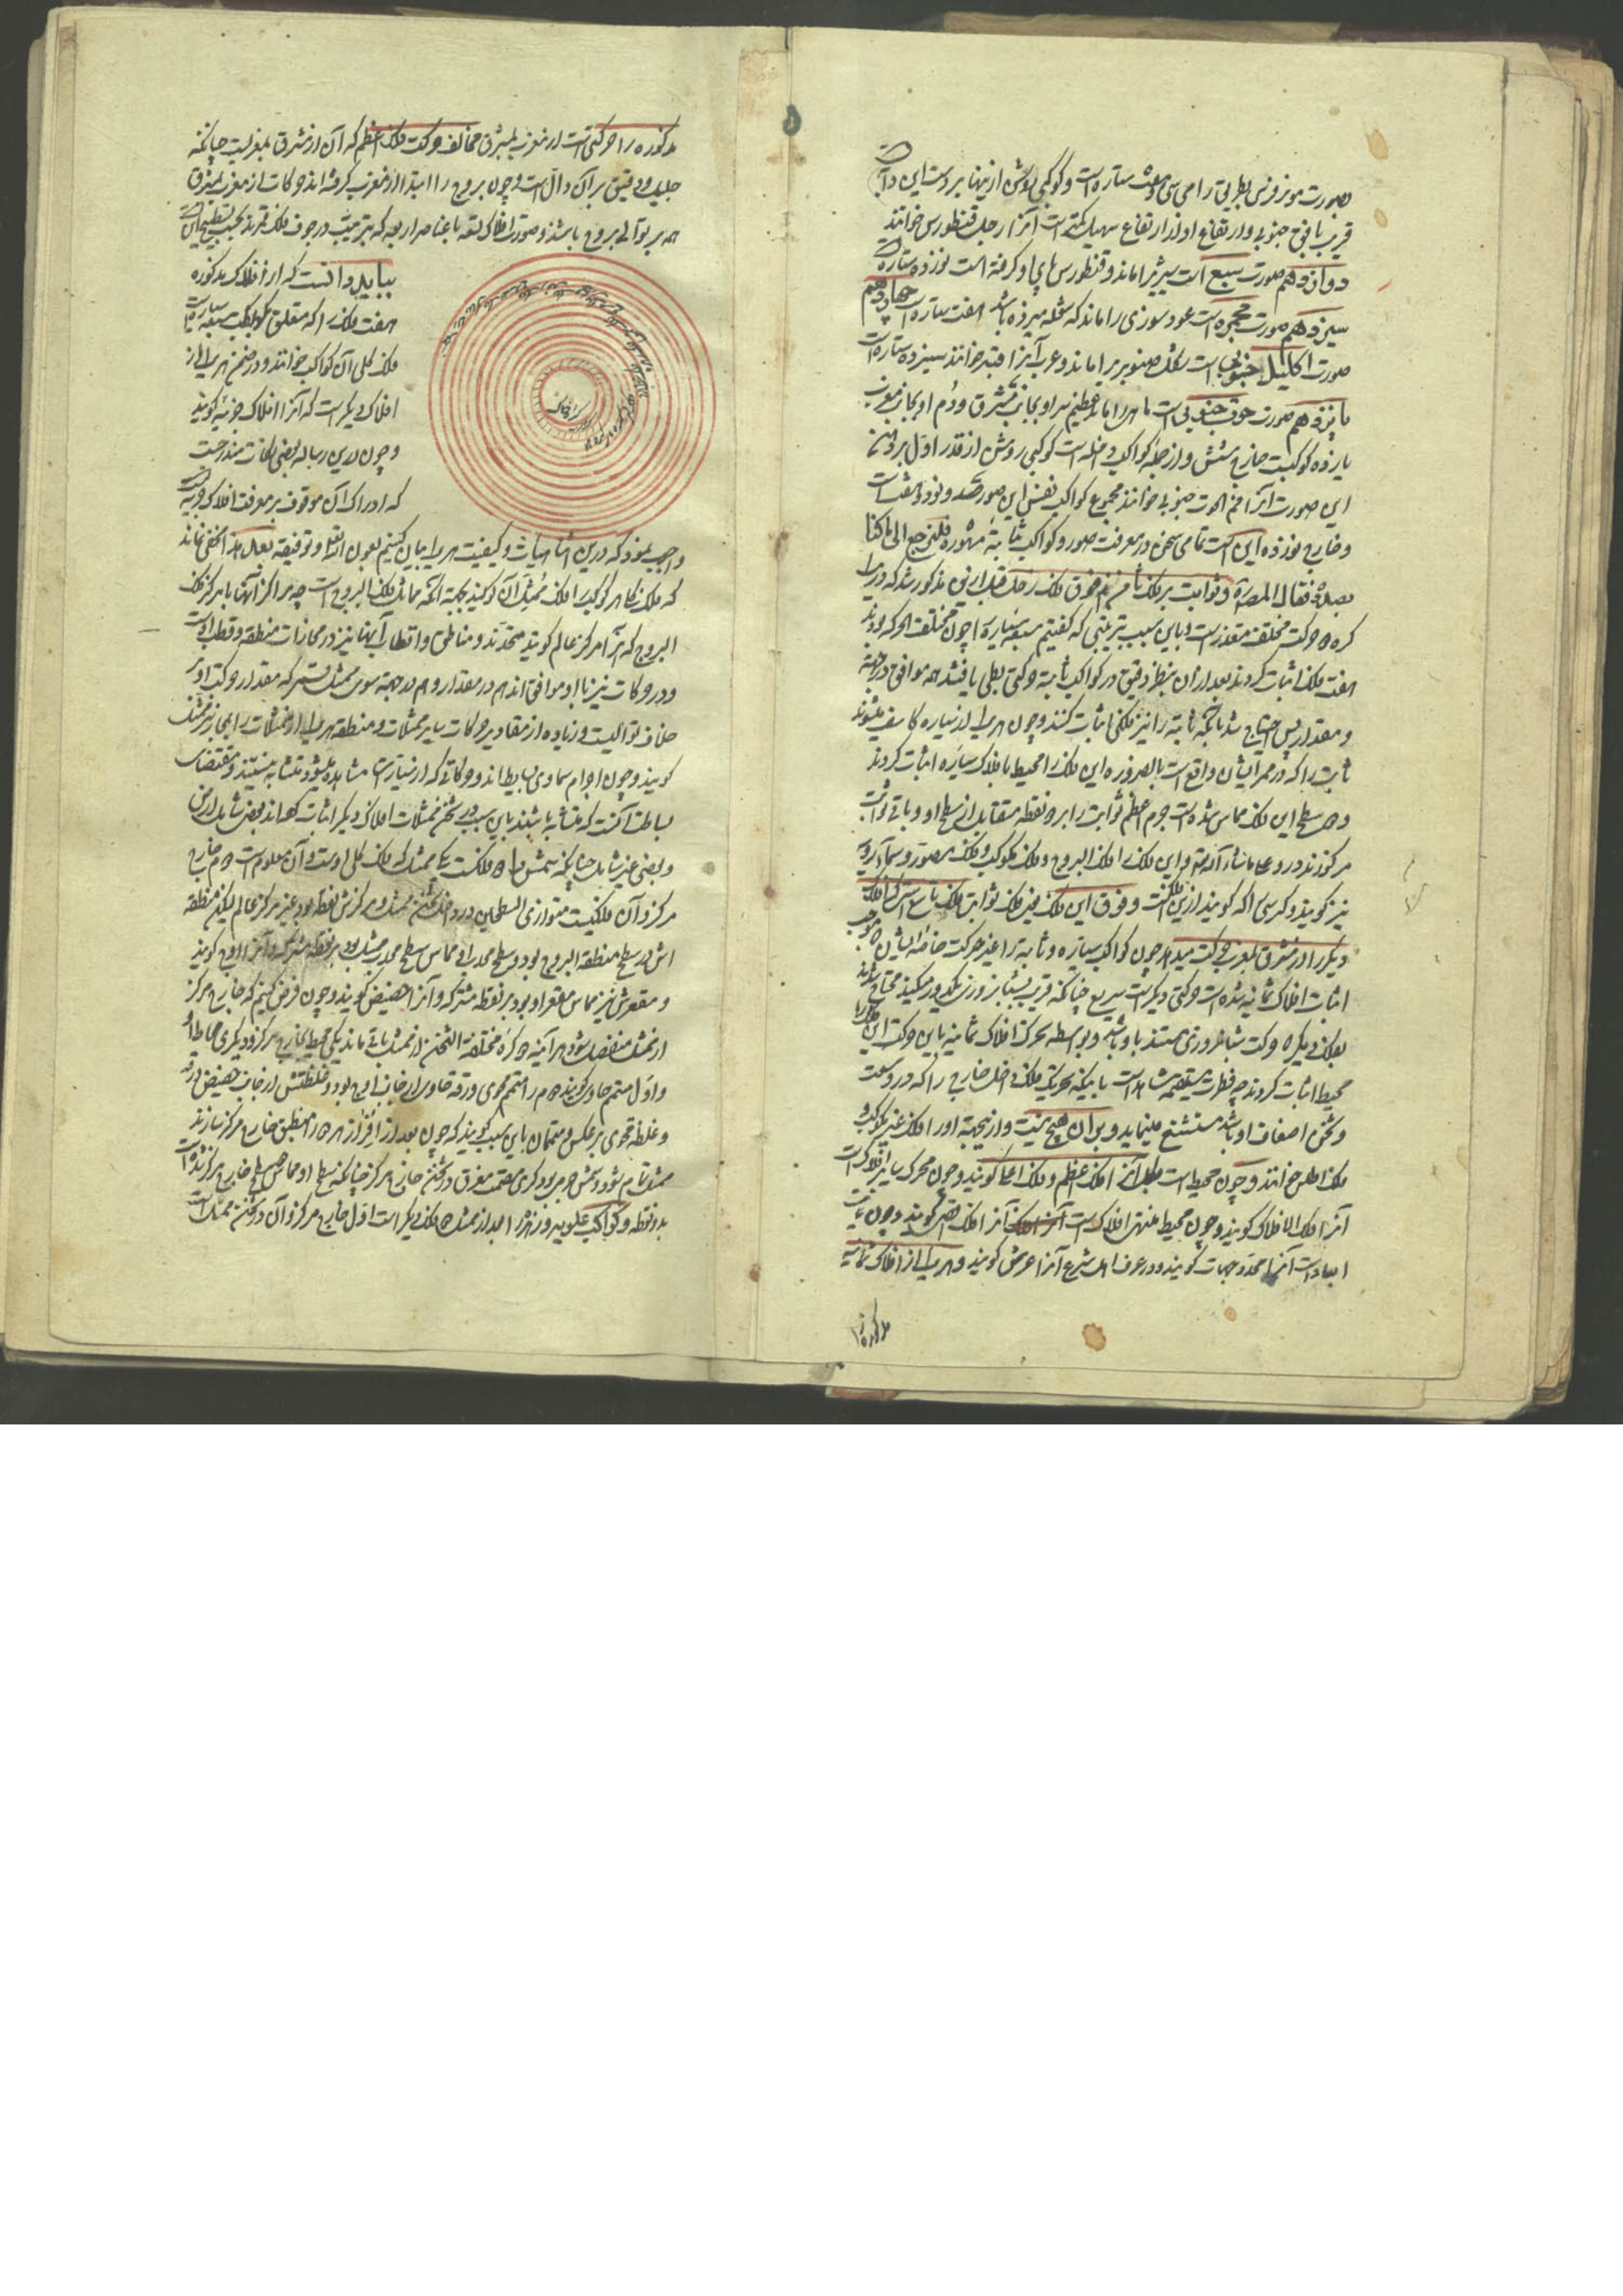 بصورت موزفرنس بطریقی را می سی و هفت ستاره است و کوکبی روشن ازینها بر دست این دابه
قریب بافق جنوبی و ارتفاع او از ارتفاع سهیل کمتر است آنرا رجل قنطورس خوانند
دوازدهم صورت سبع است شیر را ماند و قنطورس پای او گرفته است نوزده ستاره
سیزدهم صورت مجمره است عود سوزی را ماند که شعله میزده باشد هفت ستاره است چهاردهم
صورت اکلیل جنوبی است شکل صنوبر را ماند و عرب آنرا قبه خوانند سیزده ستاره است
پانزدهم صورت حوت جنوبی است ماهی را ماند عظیم سر او بجانب مشرق و دم او بجانب مغرب
یازده کوکبست خارج شش و از جمله کواکب داخله است کوکبی روشن از قدر اول بر دهن
این صورت آنرا فم الحوت جنوبی خوانند مجموع کواکب نفس این صور دو صد و نود و هفت است
و خارج نوزده این است تمامی سخن در معرفت صور و کواکب ثابته مشهوره فلنرجع الی ما کنا
بصدده فقال المص و ثوابت بر فلک ثامن اند فوق فلک زحل قبل ازین مذکور شد که در یک
کره دو حرکت مختلف متعذرست و باین سبب بترتیبی که گفتیم سبعه سیاره را چون مختلف الحرکه بودند
هفت فلک اثبات کردند بعد از آن بنظر دقیق در کواکب ثابته حرکتی بطی یافتند همه موافق در جهة
و مقدار پس احتیاج شد بآنکه ثابته را نیز فلکی اثبات کنند و چون هر یک از سیاره کاسف میشوند
ثابته را که در ممر ایشان واقع است بالضروره این فلک را محیط بافلاک سیاره اثبات کردند
و هر سطح این فلک مماس شده است جرم اعظم ثوابت را بر دو نقطه متقابل از سطح او و باقی ثوابت
مرکوزند درو علی ما شاء الله و این فلک را فلک البروج و فلک مکوکب و فلک مصور و سماء رؤیه
نیز گویند و کرسی را که گویند ازین فلکست و فوق این فلک یعنی فلک ثوابت فلک تاسع است که افلاک
دیگر را از مشرق بمغرب حرکت میدهد چون کواکب سیاره و ثابته را غیر حرکت خاصه ایشان که موجب
اثبات افلاک ثمانیه شده است حرکتی دیگرست سریع چنانکه قریب بشبانروزی یک دور میکنند محتاج شدند
بفلک دیگر که حرکت شبانروزی مستند باو باشد و بواسطه تحرک افلاک ثمانیه باین حرکت این فلک را
محیط اثبات کردند چه فطرت سلیمه شاهد است بآنکه تحریک فلک داخل خارج را که در وسعت
و ثخن اضعاف او باشد مستشنع مینماید و بر آن هیچ نیست و ازینجهة او را فلک غیر مکوکب و
فلک اطلس خوانند و چون محیط است بکل آنرا فلک اعظم و فلک اعلا گویند و چون محرک سایر افلاک است
آنرا فلک الافلاک گویند و چون محیط منتهی افلاک است آنرا فلک اقصی گویند و چون نهایت
ابعاد است آنرا محدد جهات گویند و در عرف اهل شرع آنرا عرش گویند و هر یک از افلاک ثمانیه
مذکوره را
مذکوره را حرکتی است از مغرب بمشرق مخالف حرکت فلک اعظم که آن از مشرق بمغربست چنانکه
جلیل و دقیق بر آن دال است و چون بروج را ابتدا از مغرب کرفته اند حرکات از مغرب بمشرق
همه بر توالی بروج باشد و صورت افلاک تسعه با عناصر اربعه که بترتیب در جوف فلک قمرند بحسب تسطیح این است
بباید دانست که از افلاک مذکوره
هفت فلک را که متعلق بکواکب سبعه سیاره است
فلک کلی آن کواکب خوانند و در ضمن هر یک از
افلاک دیگرست که آنرا افلاک جزئیه گویند
و چون درین رساله بعضی نکات مندرجست
که ادراک آن موقوف بر معرفت افلاک جزئیه
واجب نمود که درین اثنا هیات و کیفیت هر یک بیان کنیم بعون الله و توفیقه
که فلک کلی هر کوکب را فلک ممثل آن کوکب گویند بجهة آنکه مماثل فلک البروج است چه مراکز آنها با مرکز فلک
البروج که آنرا مرکز عالم گویند متحدند و مناطق و اقطاب آنها نیز در محازات منطقه و قطب اوست
و در حرکات نیز با او موافق اند هم در مقدار و هم در جهة سوی ممثل قمر که مقدار حرکت او بر
خلاف توالیست و زیاده از مقادیر حرکات سایر ممثلات و منطقه هر یک از ممثلات را هم نیز ممثل
گویند و چون اجرام سماوی بسایط اند و حرکاتی که از سیارات مشاهده میشود متشابه نیستند و مقتضای
بساطت آنست که متشابه باشند باین سبب در ثخن ممثلات افلاک دیگر اثبات کرده اند بعض شامل ارض
و بعضی غیر شامل چنانکه شمس را دو فلکست یکی ممثل که فلک کلی اوست و آن معلوم است دوم خارج
مرکز و آن فلکیست متوازی السطحین در داخل ثخن ممثل و مرکزش نقطه بود غیر مرکز عالم لیکن منطقه
اش در سطح منطقه البروج بود و سطح محدب او مماس سطح محدب ممثل بود بر نقطه مشترکه و آنرا اوج گویند
و مقعرش نیز مماس مقعر او بود بر نقطه مشترکه و آنرا حضیض گویند و چون فرض کنیم که خارج مرکز
از ممثل منفصل شود هر آینه دو کره مختلفة الثخن از ممثل باقی ماند یکی محیط بخارج مرکز و دیگری محاط
و اول متمم حاوی گویند و دوم را متمم محوی و رقه حاوی از جانب اوج بود و غلظتش از جانب حضیض و رقه
و غلظه محوی بر عکس و متممان باین سبب گویند که چون بعد از افراز هر دو را منطبق خارج مرکز سازند
ممثل تمام شود و شمس جرمی بود کری مصمت مغرق در ثخن خارج مرکز چنانکه سطح او مماس هر دو سطح خارج مرکز شده است
بدو نقطه و کواکب علویه و زهره را بعد از ممثل دو فلک دیگر است اول خارج مرکز و آن در ثخن ممثل است